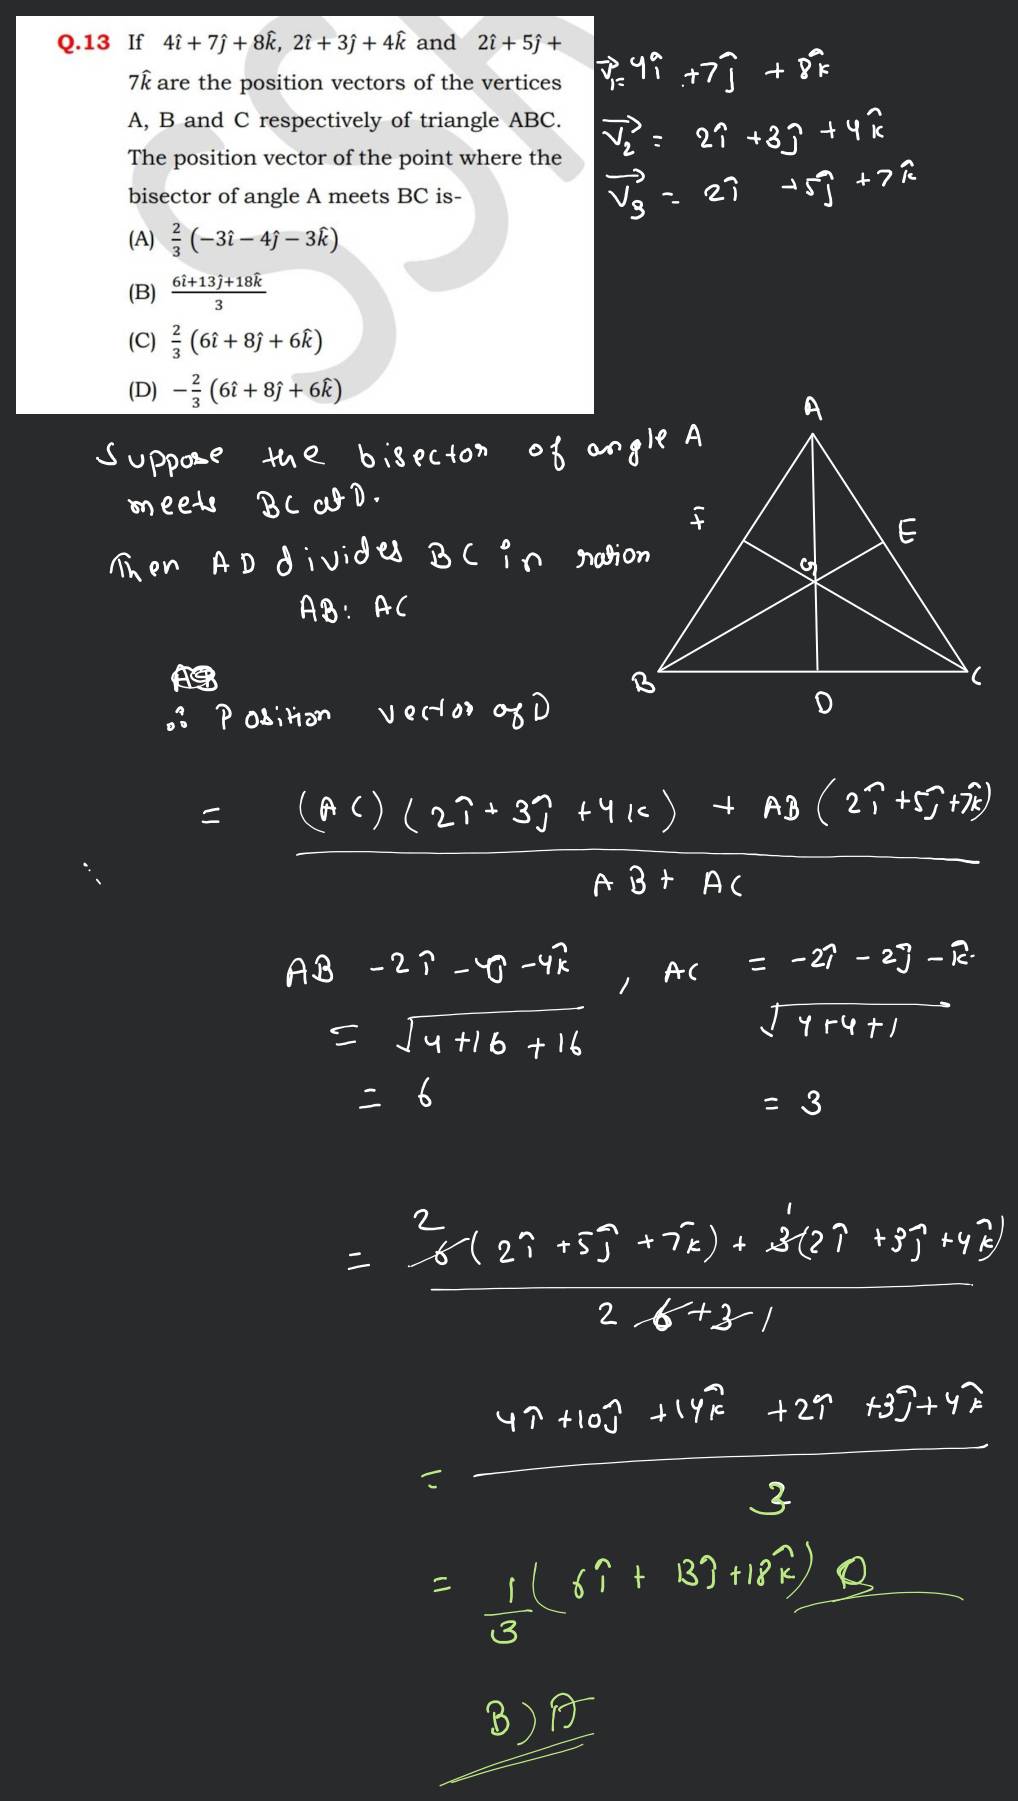 Q.13 If 4î + 7ĵ + 8k̂, 2î + 3ĵ + 4k̂ and 2î + 5ĵ +
7k̂ are the position vectors of the vertices
A, B and C respectively of triangle ABC.
The position vector of the point where the
bisector of angle A meets BC is-
(A) 2/3 (−3î − 4ĵ − 3k̂)
(B) 6î+13ĵ+18k̂ / 3
(C) 2/3 (6î + 8ĵ + 6k̂)
(D) −2/3 (6î + 8ĵ + 6k̂)
V⃗1 = 4î + 7ĵ + 8k̂
V⃗2 = 2î + 3ĵ + 4k̂
V⃗3 = 2î + 5ĵ + 7k̂
Suppose the bisector of angle A
meets BC at D.
Then AD divides BC in ration
AB: AC
A
F
E
G
B
C
D
∴ Position vector of D
= (AC) (2î + 3ĵ + 4k) + AB (2î + 5ĵ + 7k̂)
AB + AC
AB -2î - 4ĵ - 4k̂, AC = -2î - 2ĵ - k̂
= √4+16+16 √4+4+1
= 6 = 3
= 2 6(2î + 5ĵ + 7k̂) + 1 3(2î + 3ĵ + 4k̂)
2 6+3 1
= 4î + 10ĵ + 14k̂ + 2î + 3ĵ + 4k̂
3
= 1/3 (6î + 13ĵ + 18k̂)
B) A